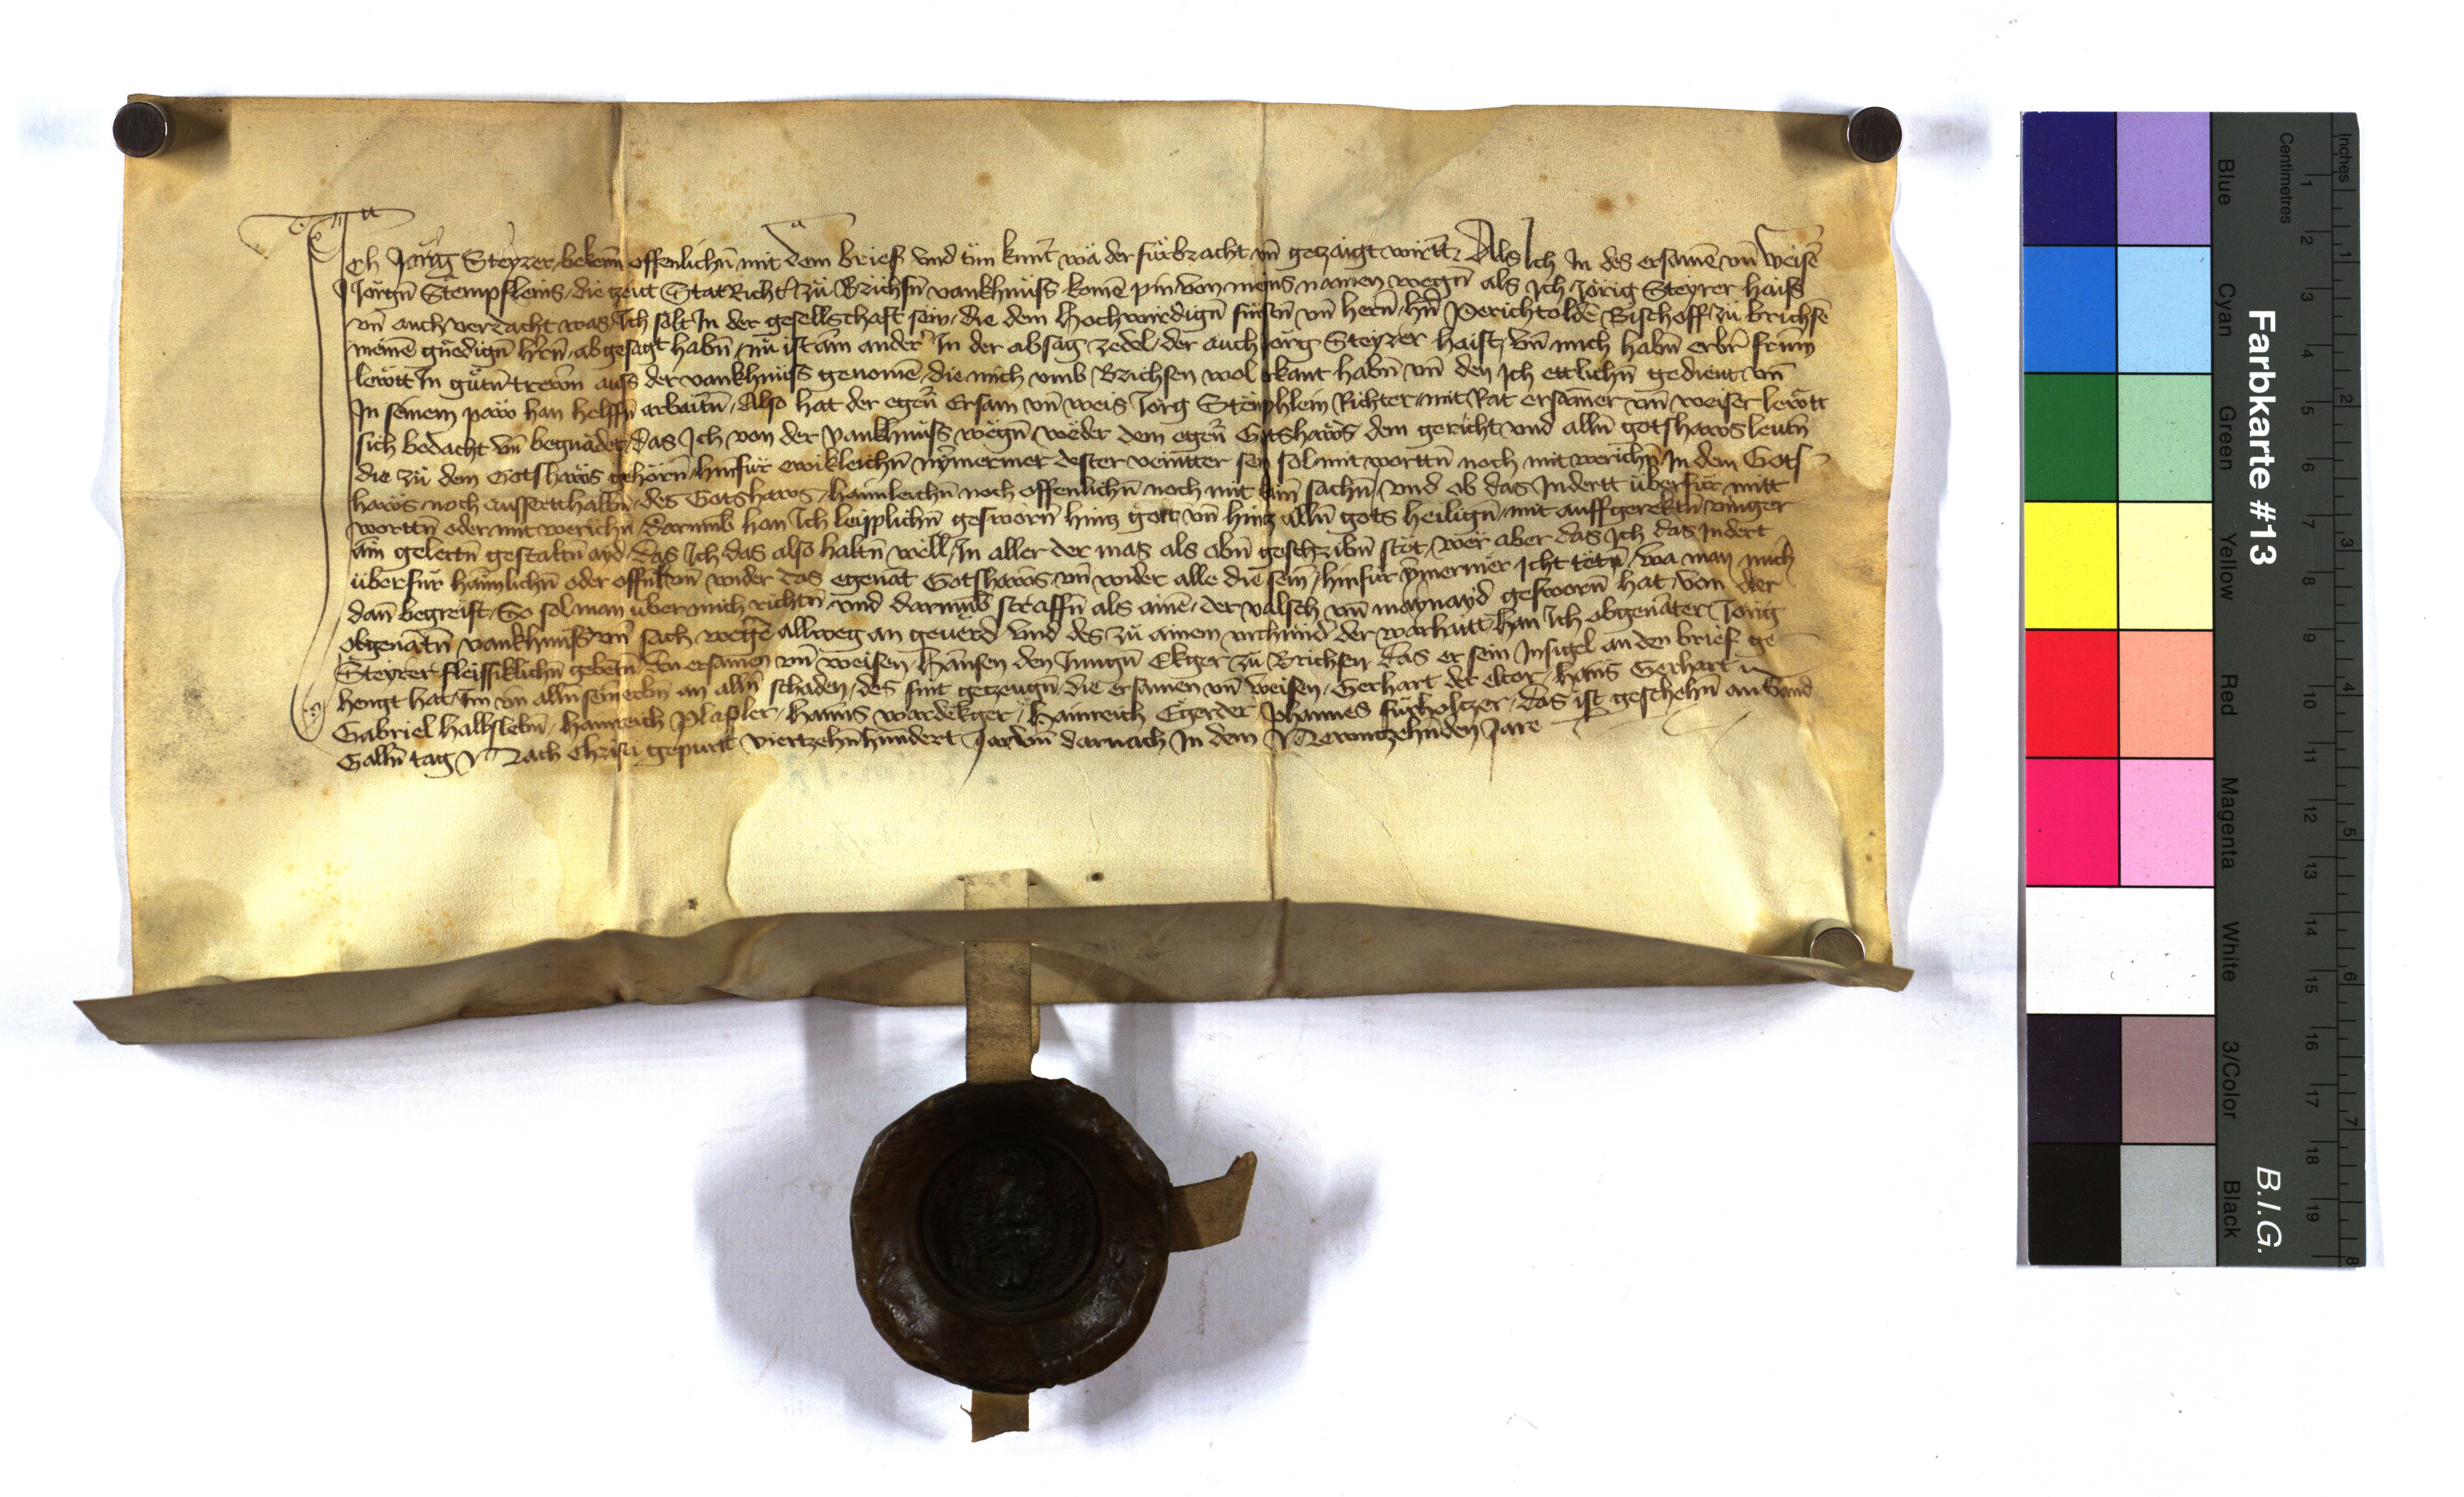 Ich Jörig Steyrer bekenn offenlichn̄ mit dem brief vnd tün kunt wä der fürbracht vn̄ getzaigt wirtt Als Ich In des ersamē vn̄ weisē
Jörgn̄ Stempfleins die tzeit StatRichter zü Brichsn̄ vankhnüss komē pin von meins namen wegn̄ als Ich Jörig Steyrer haiss
vn̄ auch verdacht was Ich solt In der gesellschaft sein die dem Hochwirdign̄ fürstn̄ vn̄ hern̄ hn̄ Perichtolde Bischoff zü brichsē
meinē gnëdign̄ h'rn̄ abgesagt habn̄ nü ist ain ander' In der absag zedel der auch Jörg Steyrer haist vn̄ mich habn̄ erbr̄ frum̄
lewtt In gütn̄ trewn̄ auss der vankhnüss genomē die mich vmb Brichsen wol erkant habn̄ vn̄ den Ich ettlichn̄ gedient vn̄
In seinem paw han helffn̄ arbaitn̄ Also hat der egen̄ Ersam vn̄ weis Jörg Stemphlein Richter mit Rat ersamer vn̄ weiser lewtt
sich bedacht vn̄ begnadet das Ich von der vankhnüss wegn̄ weder dem egen̄ Gotshaws dem gericht vnd alln̄ gotshaws leutn̄
die zü dem Gotshaws gehörn̄ hinfür ewikleichn̄ nymermer dester veintter sein sol mit worttn̄ noch mit werichn̄ In dem Gots
haws noch aussertthalbn̄ des Gotshaws haimleichn̄ noch offenlichn̄ noch mit kain̄ sachn̄ vnd ob das Indertt überfür mitt
worttn̄ oder mit werichn̄ darumb han Ich leipplichn̄ gesworn̄ hintz got vn̄ hintz alln̄ gots heilign̄ mit auffgerektn̄ vinger
ain gelertn̄ gestaltn̄ ayd das Ich das also haltn̄ wëll In aller der mas als obn̄ geschribn̄ stët wër aber das Ich das Indert
überfür haimlichn̄ oder offnlichn̄ wider das egenāt Gotshaws vn̄ wider alle die sein hinfür ymermer Icht tëtn̄ wa man mich
dan̄ begreift So sol man über mich richtn̄ vnd darumb straffn̄ als ainē der valsch vn̄ maynayd gesworn̄ hat von der
obgenātn̄ vankhnüss vn̄ sach wegē allweg an geuerd vnd des zü ainem vrchünd der warhaitt han Ich obgenāter Jörig
Steyrer fleissiklichn̄ gebetn̄ den ersamen vn̄ weisen Hansen den Jungn̄ Ekger zü Brichsen das er sein Insigel an den brief ge
hengt hat Im vn̄ alln̄ sein erbn̄ an alln̄ schaden des sint getzeugn̄ die ersamen vn̄ weisen Gerhart der elter Hans Gerhart
Gabriel Hallslebn̄ Hainreich Hanns wardekger Hainreich Egerder Johannes fürholtzer das ist geschehn̄ an Sand
Galln̄ tag Nach Christi gepurtt viertzehnhundert Jar vn̄ darnach In dem Newntzehnden Jare
Farbkarte #13
B.I.G.
Inches
Centimetres
Blue Cyan Green Yellow Red Magenta White 3/Color Black
1 2 3 4 5 6 7 8 9 10 11 12 13 14 15 16 17 18 19
1 2 3 4 5 6 7 8